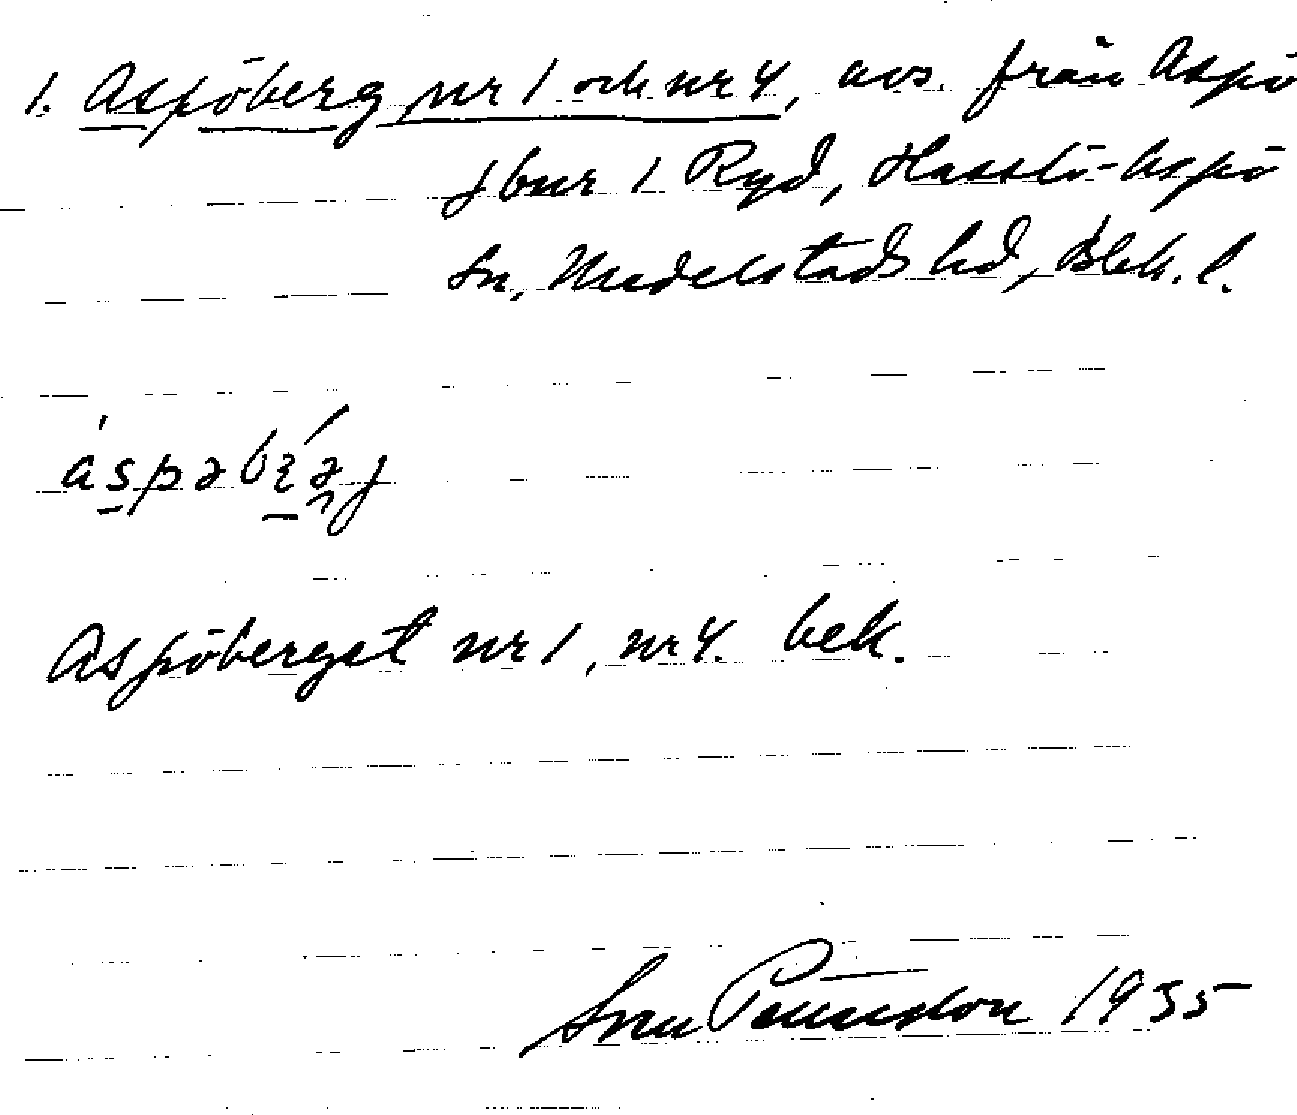 1. Aspöberg nr 1 och nr 4, avs. från Aspö
jbnr 1 Ryd, Hasslö-Aspö
sn, Medelstads hd, Blek. l.
Aspöberget nr 1, nr 4. bek.
1935